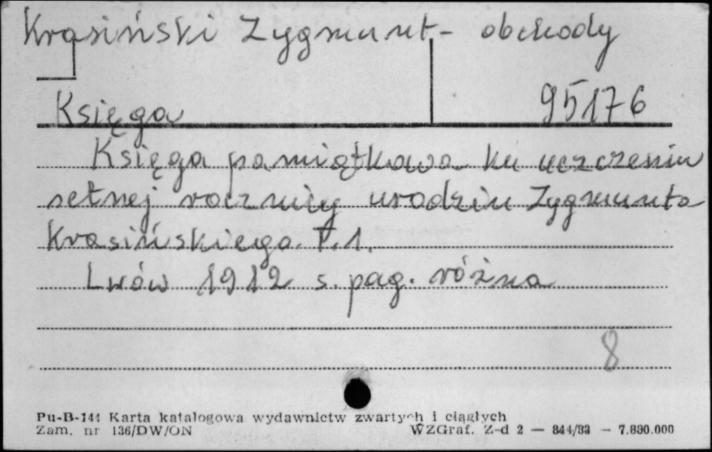 Krasiński Zygmunt - obchody
Księga 95176
Księga pamiątkowa ku uczczeniu
setnej rocznicy urodzin Zygmunta
Krasińskiego. T.1.
Lwów 1912 s. pag. różna
8
Pu-B-144 Karta katalogowa wydawnictw zwartych i ciągłych
Zam. nr 136/DW/ON WZGraf. Z-d 2 — 844/83 — 7.830.000